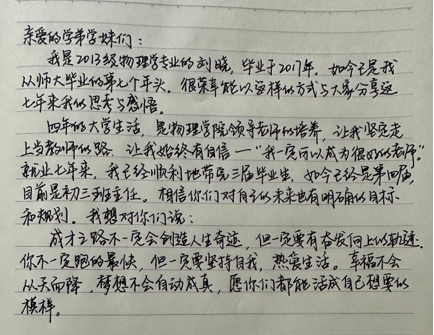 亲爱的学弟学妹们：
我是2013级物理学专业的刘晓，毕业于2017年，如今已是我
从师大毕业的第七个年头。很荣幸能以这样的方式与大家分享这
七年来我的思考与感悟。
四年的大学生活，是物理学院领导老师的培养，让我坚定走
上当教师的路，让我始终有自信一"我一定可以成为很好的老师"。
就业七年来，我已经顺利地带完三届毕业生，如今已经是第四届，
目前是初三班主任。相信你们对自己的未来也有明确的目标
和规划。我想对你们说：
成才之路不一定会创造人生奇迹，但一定要有奋发向上的轨迹，
你不一定跑的最快，但一定要坚持自我，热爱生活。幸福不会
从天而降，梦想不会自动成真，愿你们都能活成自己想要的
模样。